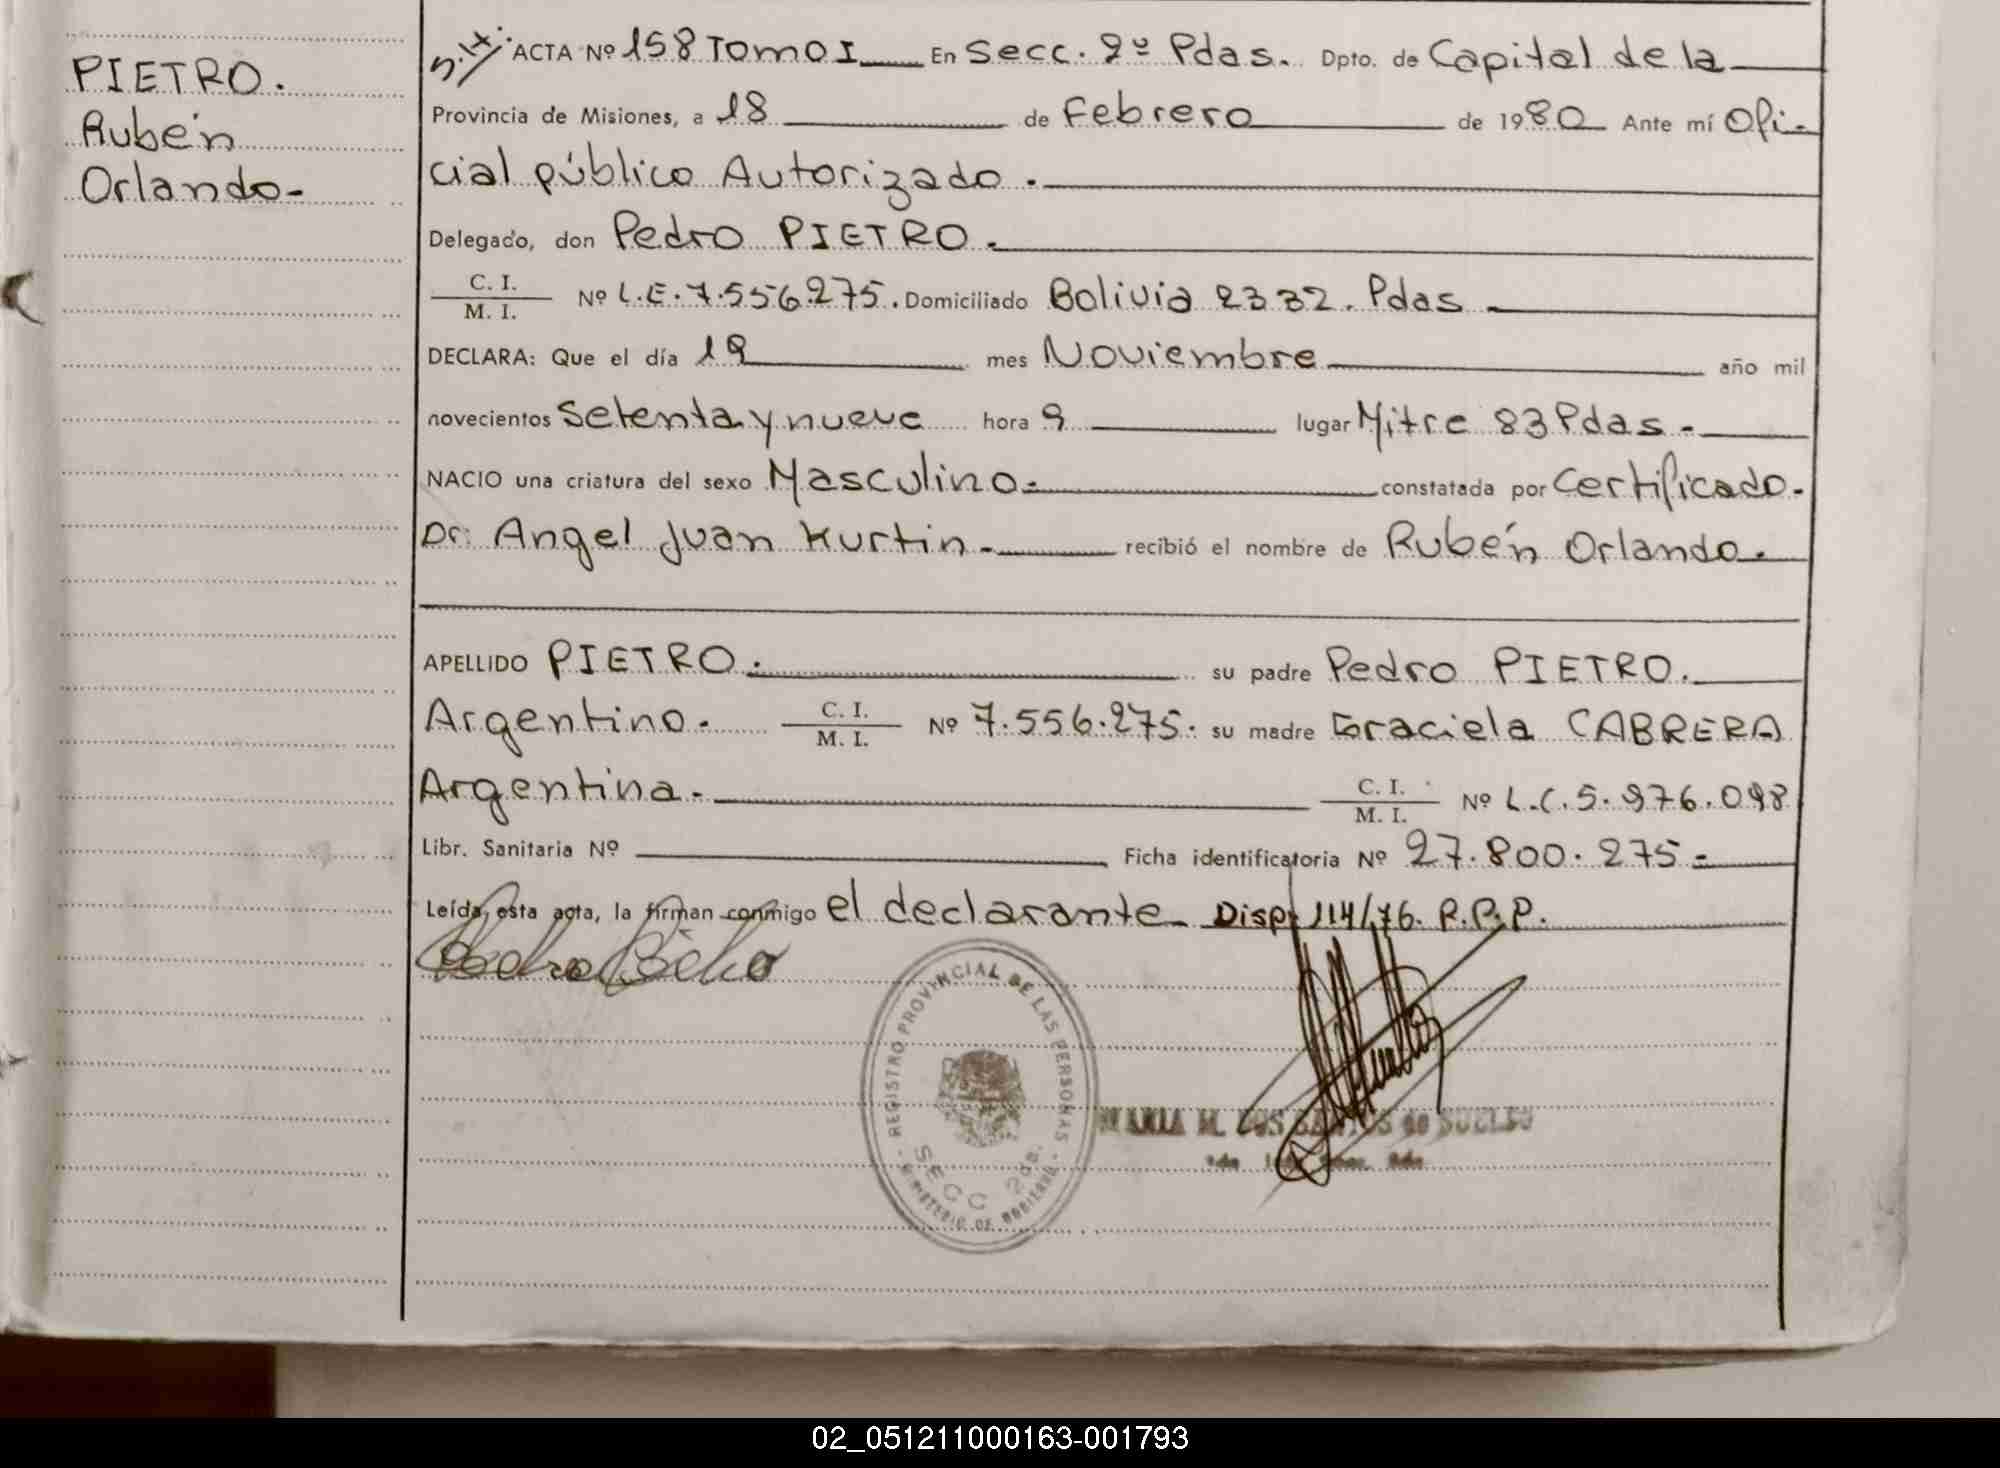 PIETRO.
Rubén
Orlando-
ACTA Nº 158 Tomo I En Secc. 2º Pdas. Dpto. de Capital de la
Provincia de Misiones, a 18 de Febrero de 1980 Ante mí Ofi-
cial público Autorizado.
Delegado, don Pedro PIETRO.
C. I.
M. I. Nº L.E. 7.556.275. Domiciliado Bolivia 2332. Pdas
DECLARA: Que el día 19 mes Noviembre año mil
novecientos setenta y nueve hora 9 lugar Mitre 83 Pdas.
NACIO una criatura del sexo Masculino. constatada por Certificado.
Dr. Angel Juan Kurtin. recibió el nombre de Rubén Orlando.
APELLIDO PIETRO. su padre Pedro PIETRO.
Argentino. C. I. M. I. Nº 7.556.275. su madre Graciela CABRERA
Argentina. C. I. M. I. Nº L.C. 5.976.098
Libr. Sanitaria Nº Ficha identificatoria Nº 27.800.275
Leída, esta acta, la firman conmigo el declarante Disp. 114/76. R.P.P.
REGISTRO PROVINCIAL DE LAS PERSONAS
SECC 2da.
MINISTERIO DE GOBIERNO
MARIA M. LOS SANTOS de SUELDO
02_051211000163-001793